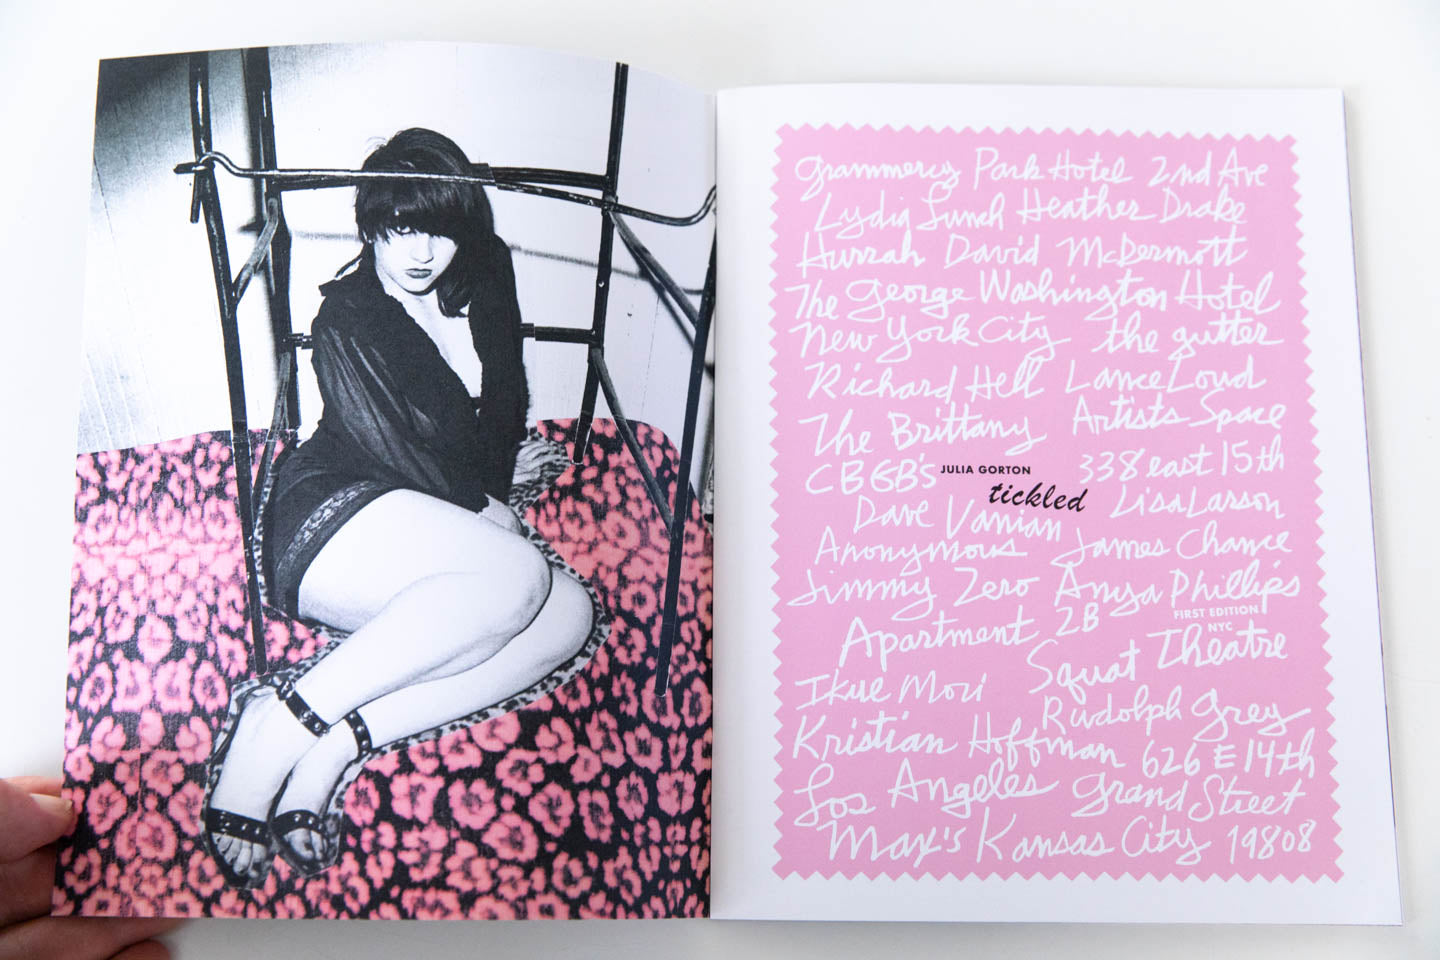 Grammercy Park Hotel 2nd Ave
Lydia Lunch Heather Drake
Hurrah David McDermott
The George Washington Hotel
New York City the gutter
Richard Hell Lance Loud
The Brittany Artists Space
CBGB's JULIA GORTON 338 east 15th
tickled
Dave Vanian Lisa Larson
Anonymous James Chance
Jimmy Zero Anya Phillips
FIRST EDITION
NYC
Apartment 2B Squat Theatre
Ikue Mori Rudolph Grey
Kristian Hoffman 626 E 14th
Los Angeles Grand Street
Max's Kansas City 19808